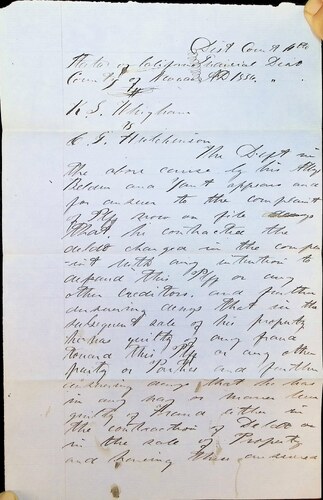 Dist Court 14th
State of California Judicial Dist
County of Nevada AD 1856
K. S.
vs
C. F. Hutchinson
The Deft in
the above cause by his Atty
and appears and
for answer to the complaint
of Plff now on file
that he contracted the
debt charged in the compl
int with any intention to
defraud this Plff or any
other creditors, and further
answering denys that in the
subsequent sale of his property
he was guilty of any fraud
toward this Plff or any other
party or Parties and further
answering denys that he has
in any way or manner been
guilty of Fraud either in
the contraction of Debts or
in the sale of Property
and having thus answered